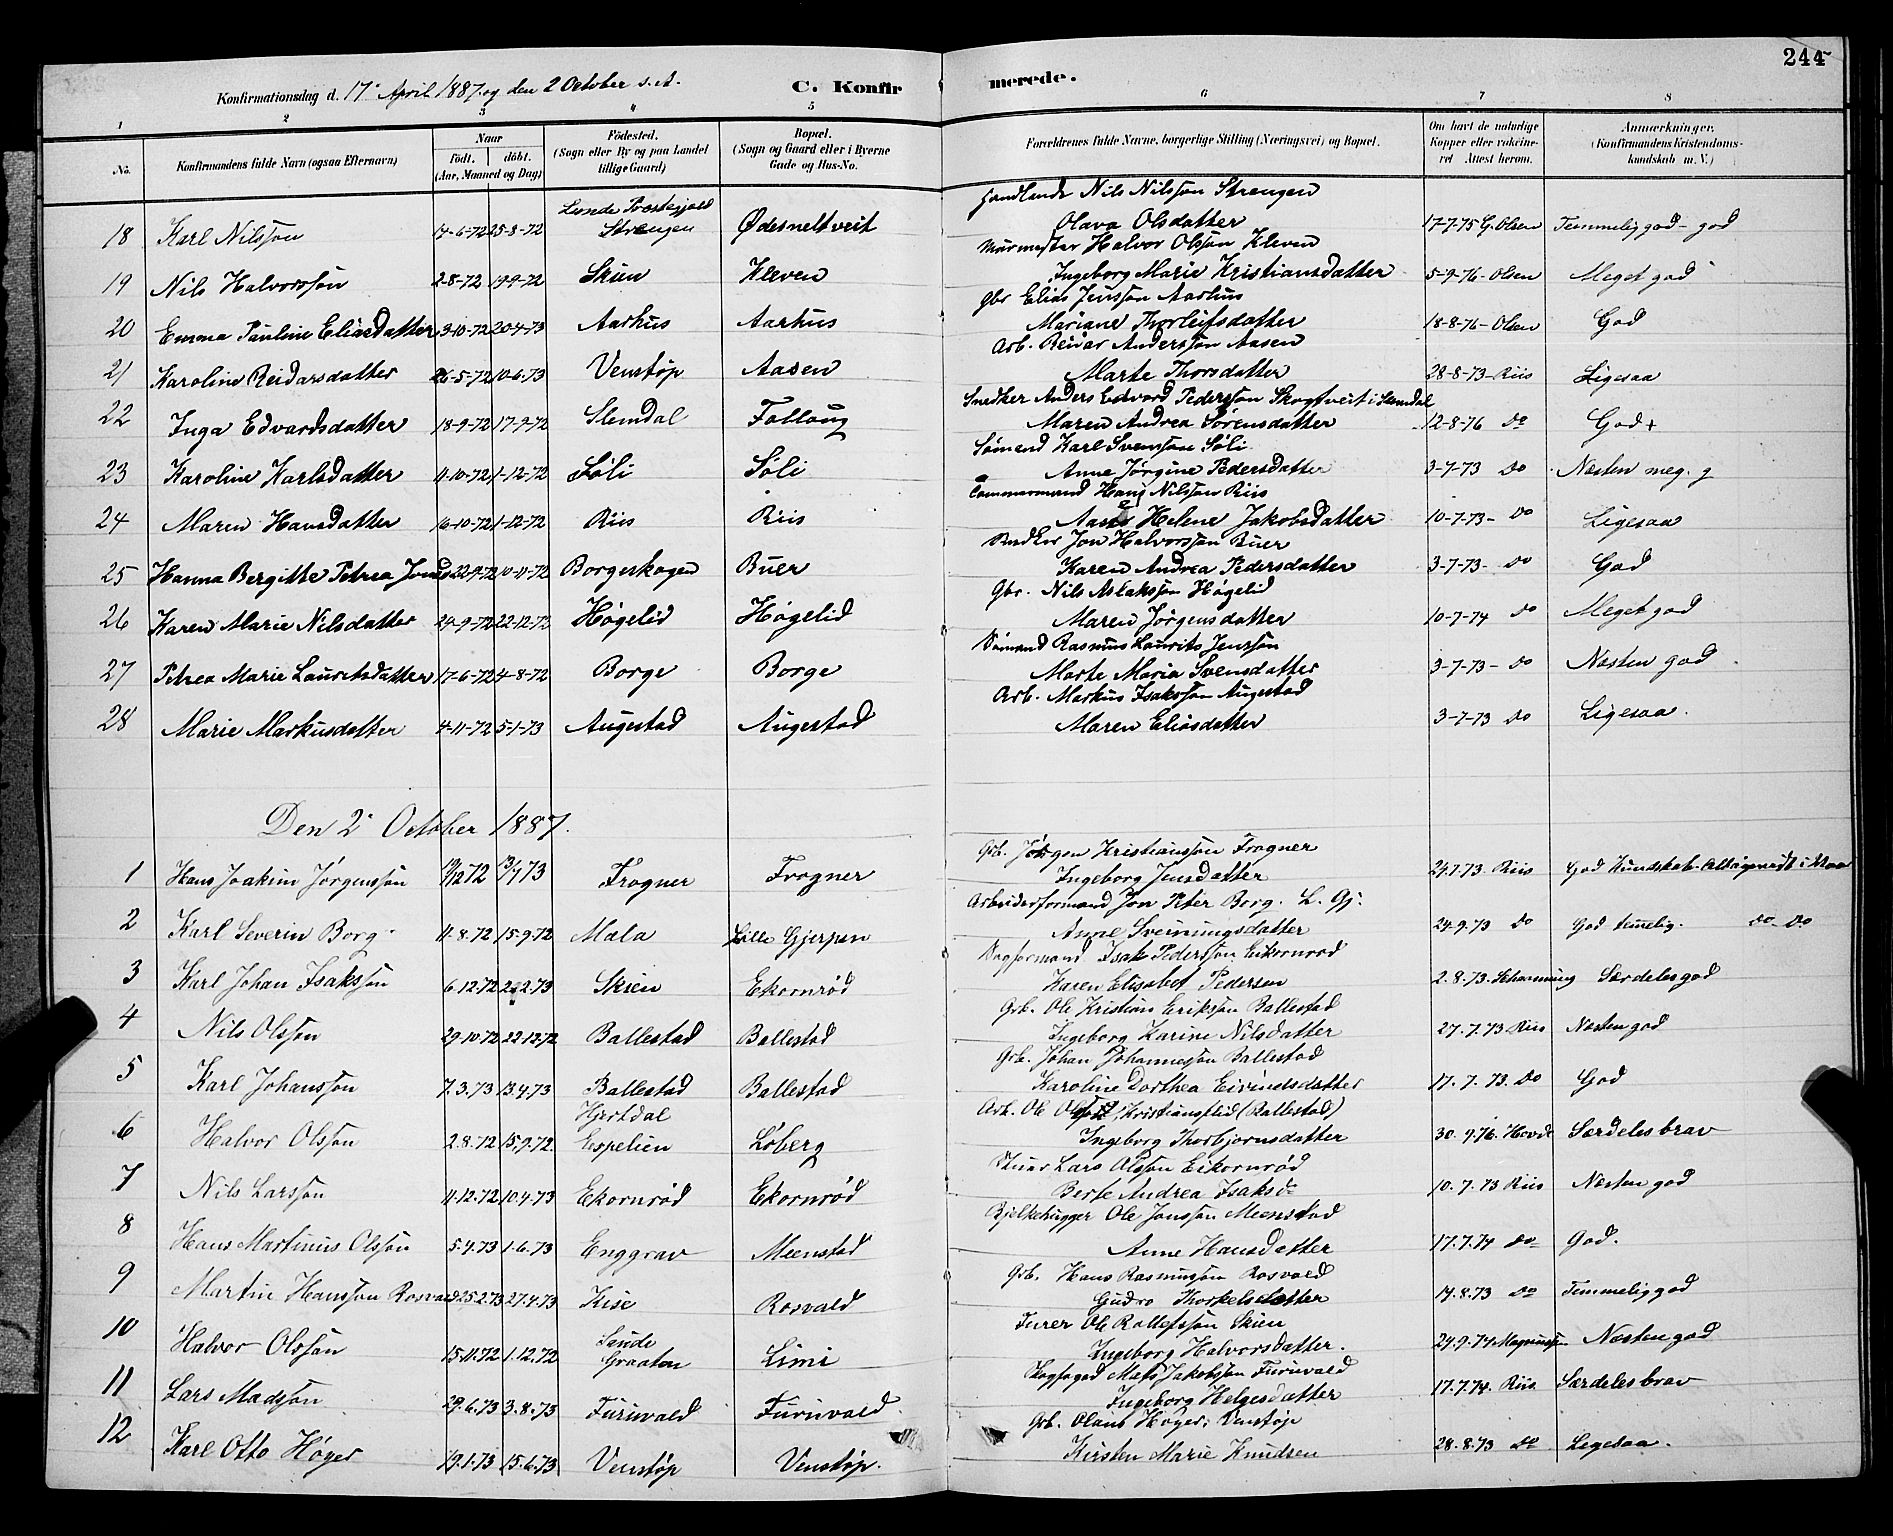 244
Konfirmationsdag d. 17. April 1887. og den 2 October s. A. C. Konfirmerede.
1 2 3 4 5 6 7 8
No. Konfirmandens fulde Navn (ogsaa Efternavn) Naar födt. döbt. (Aar, Maaned og Dag) Födested. (Sogn eller By og paa Landet tillige Gaard) Bopæl. (Sogn og Gaard eller i Byerne Gade og Hus-No. Forældrenes fulde Navne, borgerlige Stilling (Næringsvei) og Bopæl. Om havt de naturlige Kopper eller vakcineret Attest herom. Anmærkninger. (Konfirmandens Kristendomskundskab m. V.)
Lunde Præstegjæld Handlende Nils Nilssøn Strengen
18 Karl Nilssøn 14-6-72 25-8-72 Strengen Ødesneltveit Olava Olsdatter 17-7-75 G. Olsen Temmelig god - god
Murmester Halvor Olssøn Kleven
19 Nils Halvorssøn 2-8-72 19-9-72 Skien Kleven Ingeborg Marie Kristiansdatter 5-9-76- Olsen Meget god
Gbr Elias Jenssøn Aarhus
20 Emma Pauline Eliasdatter 3-10-72 20-4-73 Aarhus Aarhus Mariane Thorleifsdatter 18-8-76- Olsen God
Arb. Reidar Anderssøn Aasen
21 Karoline Reidarsdatter 26-5-72 10-6-73 Venstøp Aasen Marte Thorsdatter 28-8-73- Riis Ligesaa
Snedker Anders Edvard Pederssøn Skogtveit i Slemdal
22 Inga Edvardsdatter 18-9-72 17-9-72 Slemdal Follaug Maren Andrea Sørensdatter 12-8-76 do God +
Sømand Karl Svenssøn Søli
23 Karoline Karlsdatter 11-10-72 1-12-72 Søli Søli Anne Jørgine Pedersdatter 3-7-73 Do Næsten meg. g
Tømmermand Hans Nilssøn Riis
24 Maren Hansdatter 16-10-72 1-12-72 Riis Riis Helene Jakobsdatter 10-7-73- Do Ligesaa
Snedker Jon Halvorssøn Buer
25 Hanna Bergitte Petrea Jonsd 22-9-72 10-11-72 Borgeskogen Buer Karen Andrea Pedersdatter 3-7-73- Do God
Gbr. Nils Aslakssøn Høgelid
26 Karen Marie Nilsdatter 24-9-72 22-12-72 Høgelid Høgelid Maren Jørgensdatter 10-7-74 Do Meget god
Sømand Rasmus Laurits Jenssøn
27 Petrea Marie Lauritsdatter 17-6-72 4-8-72 Borge Borge Marte Maria Svensdatter 3-7-73- Do Næsten god
Arb. Markus Isakssøn Augestad
28 Marie Markusdatter 4-11-72 5-1-73 Augestad Augestad Maren Eliasdatter 3-7-73 Do Ligesaa.
Den 2. October 1887.
Gb. Jørgen Kristianssøn Frogner
1 Hans Joakim Jørgenssøn Frogner Frogner Ingeborg Jensdatter 24.7.73. Riis God Kundskab.
Arbeiderformand Jon Peter Borg. L. Gj.
2 Karl Severin Borg 11.8.72 15.9.72 Mæla Lille Gjerpen Anne Sveinungsdatter 24.9.73 Do God temelig. Do Do
Sagformand Isak Pederssøn Eikornrød
3 Karl Johan Isakssøn 6.12.72 22.2.73 Skien Ekornrød Karen Elisabet Pedersen 2.8.73. Schanning Særdeles god
Gb. Ole Kristian Erikssøn Ballestad
4 Nils Olssøn 29.10.72 22.12.72 Ballestad Ballestad Ingeborg Karine Nilsdatter 27.7.73 Riis Næsten god
Gb. Johan Johannessøn Ballestad
5 Karl Johanssøn 7.3.73 13.4.73 Ballestad Ballestad Karoline Dorthea Eivindsdatter 17.7.73. Do God
Hjertdal Arb. Ole Kristianslid (Ballestad)
6 Halvor Olssøn 2.8.72 15.9.72. Espelien Løberg Ingeborg Thorbjørnsdatter 30.9.76. Hovde Særdeles brav
Lars Olssøn Eikornrød
7 Nils Larssøn 11.12.72 10.4.73 Ekornrød Ekornrød Berte Andrea Isaksd. 10.7.73 Riis Næsten god
Bjelkehugger Ole Jonssøn Meenstad
8 Hans Martinus Olssøn 5.4.73 1.6.73 Enggrav Meenstad Anne Hansdatter 17.7.74 Do God.
Gb. Hans Rasmussøn Rosvald
9 Martin Hanssøn Rosvald 25.2.73 27.4.73 Kise Rosvald Gudro Thorkelsdatter 14.8.73 Do Temmelig god
Sande Furer Ole Rollefssøn Skien
10 Halvor Olssøn 15.11.72 1.12.72 Graaten Limi Ingeborg Halvorsdatter. 24.9.74 Magnussen Næsten god
Skogfoged Mats Jakobssøn Furuvald
11 Lars Madssøn 29.6.73 3.8.73 Furuvald Furuvald. Ingeborg Helgesdatter 17.7.74. Riis Særdeles brav
Gb. Olaus Høyer, Venstøp
12 Karl Otto Høyer 19.1.73 15.6.73 Venstøp Venstøp. Kirsten Marie Knudsen 28.8.73 Do Ligesaa.